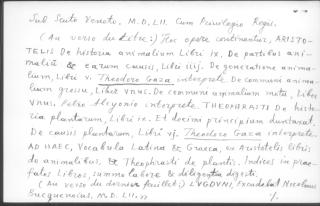 Sub Scuto Veneto, M.D.LII. Cum Privilegio Regis.
(Au verso du titre:) Hoc opere continentur, ARISTO-
TELIS De historia animalium Libri ix, De partibus ani-
malium & earum causis, Libri iiij. De generatione anima-
lium, Libri v. Theodoro Gaza interprete. De communi anima-
lium gressu, Liber vnus. De communi animalium motu, Liber
vnus, Petro Alcyonio interprete. THEOPHRASTI De histo-
ria plantarum, Libri ix. Et decimi principium duntaxat.
De causis plantarum, Libri vj. Theodoro Gaza interprete.
AD HAEC, Vocabula Latina & Graeca, ex Aristotelis libris
de animalibus, & Theophrasti de plantis. Indices in prae-
fatos Libros, summo labore & diligentia digesti.
(Au verso du dernier feuillet:) LVGDVNI, Excudebat Nicolaus
Bacquenoius, M.D.LII.